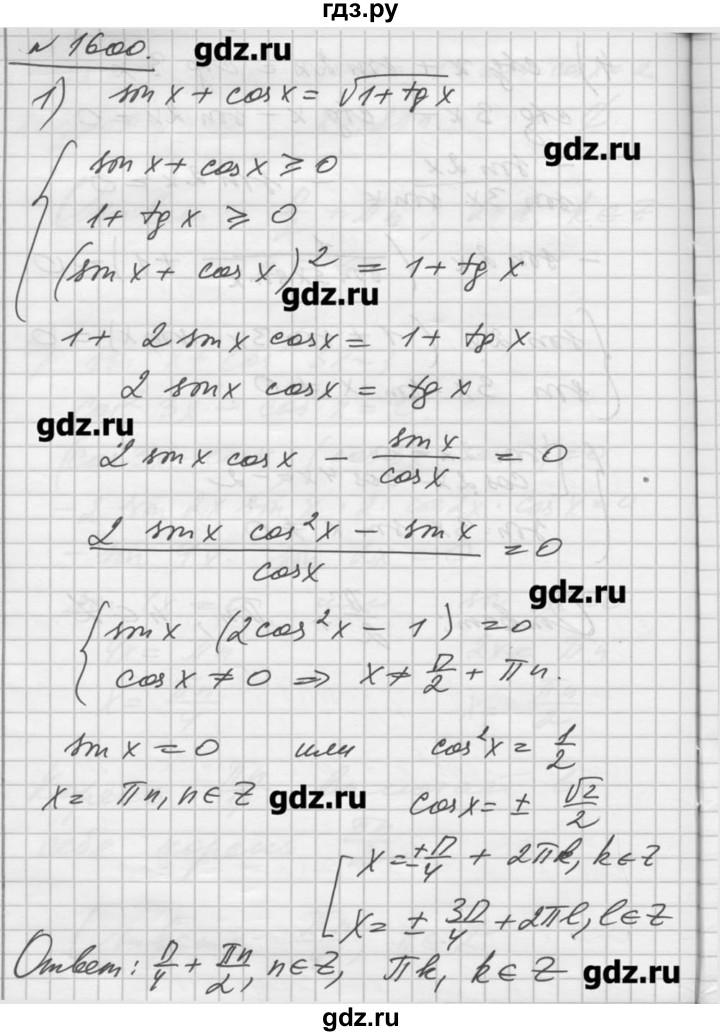 гдз.ру
№ 1600. gdz.ru
1) sin x + cos x = √(1 + tg x)
gdz.ru
sin x + cos x ⩾ 0
1 + tg x ⩾ 0
(sin x + cos x)² = 1 + tg x
gdz.ru
1 + 2 sin x cos x = 1 + tg x
2 sin x cos x = tg x
gdz.ru
2 sin x cos x − sin x / cos x = 0
(2 sin x cos² x − sin x) / cos x = 0
gdz.ru
{ sin x (2cos² x − 1) = 0
cos x ≠ 0 ⇒ x ≠ π/2 + πn.
sin x = 0 или cos² x = 1/2
x = πn, n ∈ Z gdz.ru cos x = ± √2/2
[ x = ± π/4 + 2πk, k ∈ Z
x = ± 3π/4 + 2πl, l ∈ Z
Ответ: π/4 + πn/2, n ∈ Z, πk, k ∈ Z gdz.ru
гдз.ру